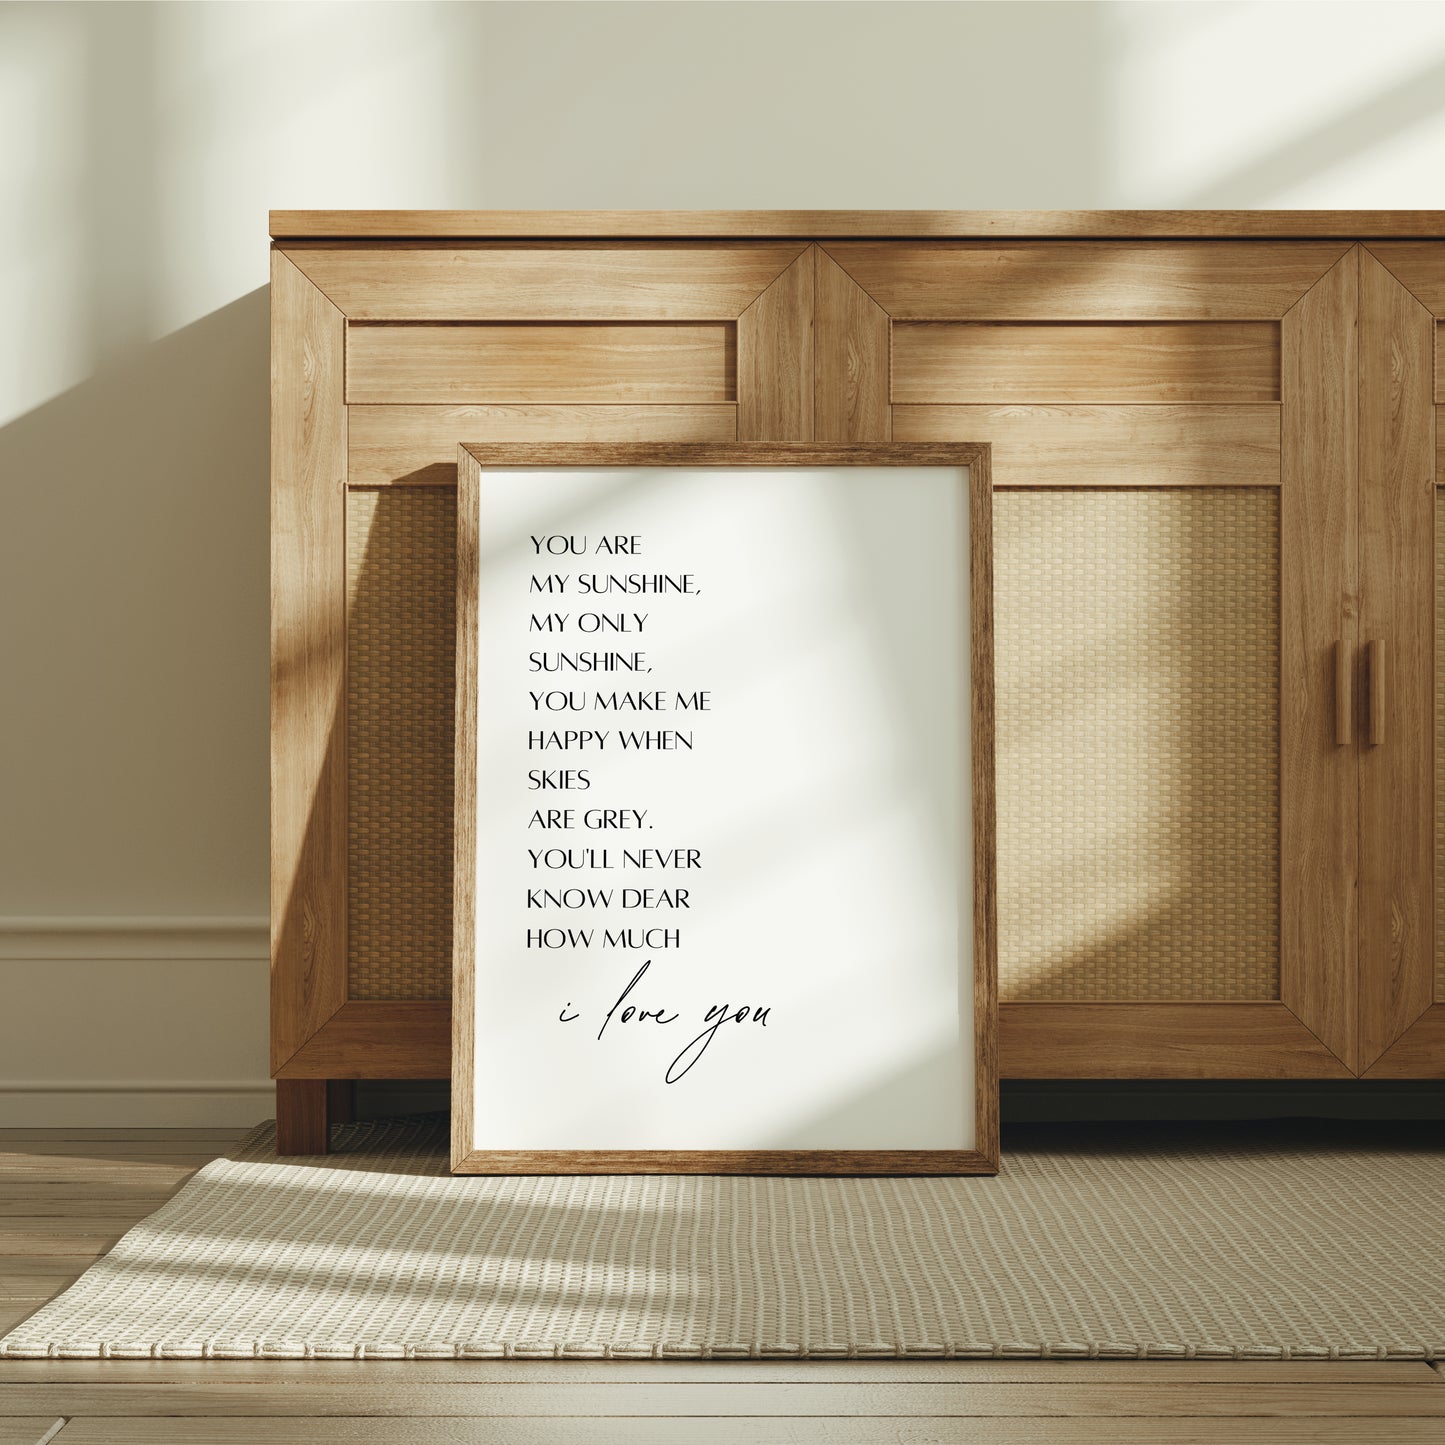 YOU ARE
MY SUNSHINE,
MY ONLY
SUNSHINE,
YOU MAKE ME
HAPPY WHEN
SKIES
ARE GREY.
YOU'LL NEVER
KNOW DEAR
HOW MUCH
i love you